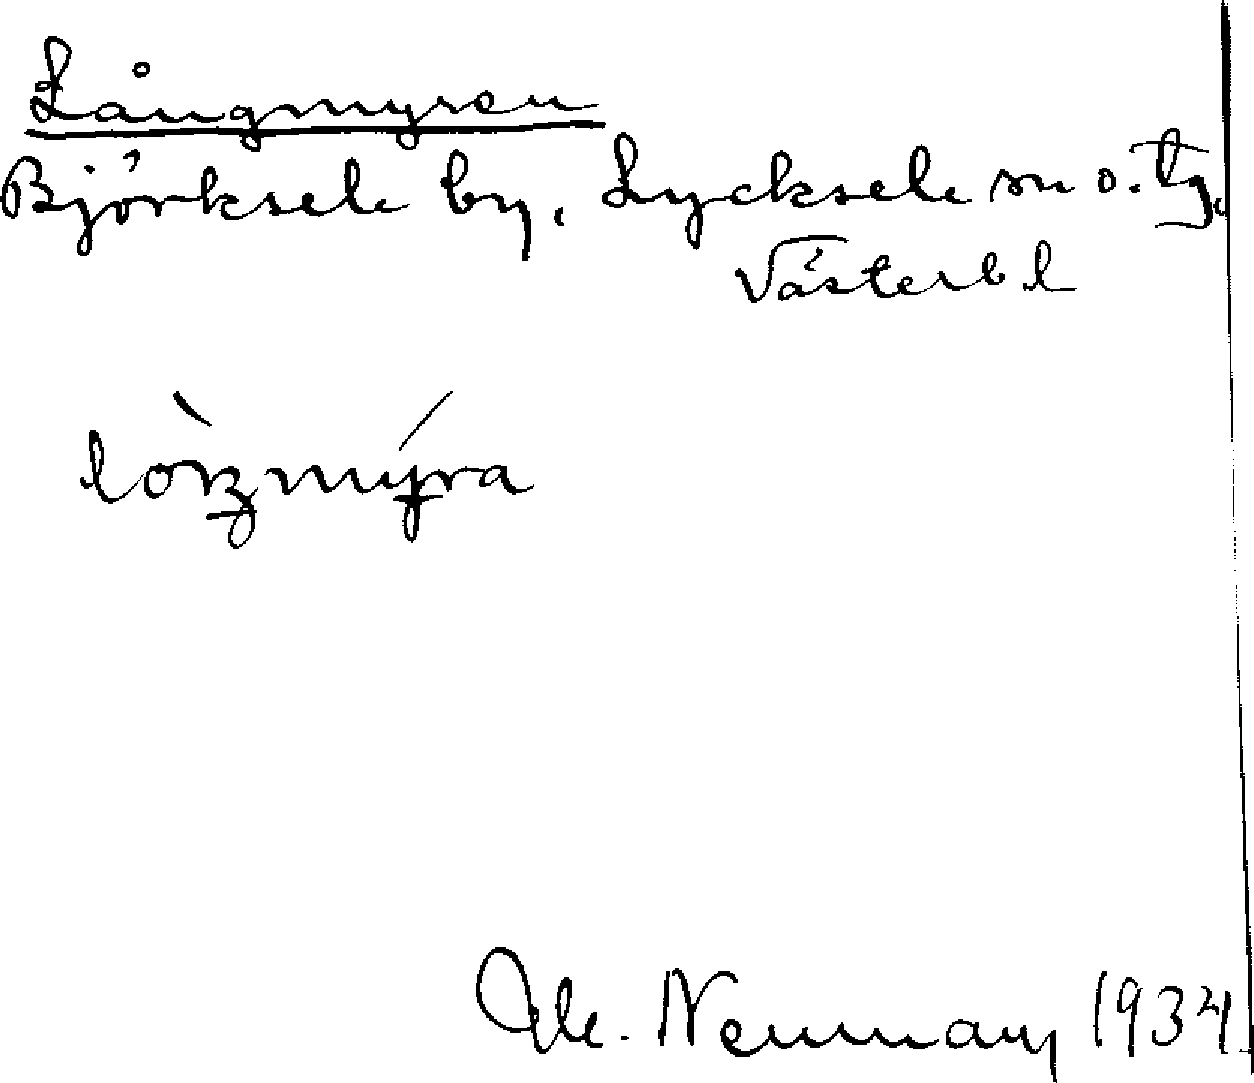 Långmyren
Björksele by, Lycksele sn o. tg.
Västerbl
Neuman 1934